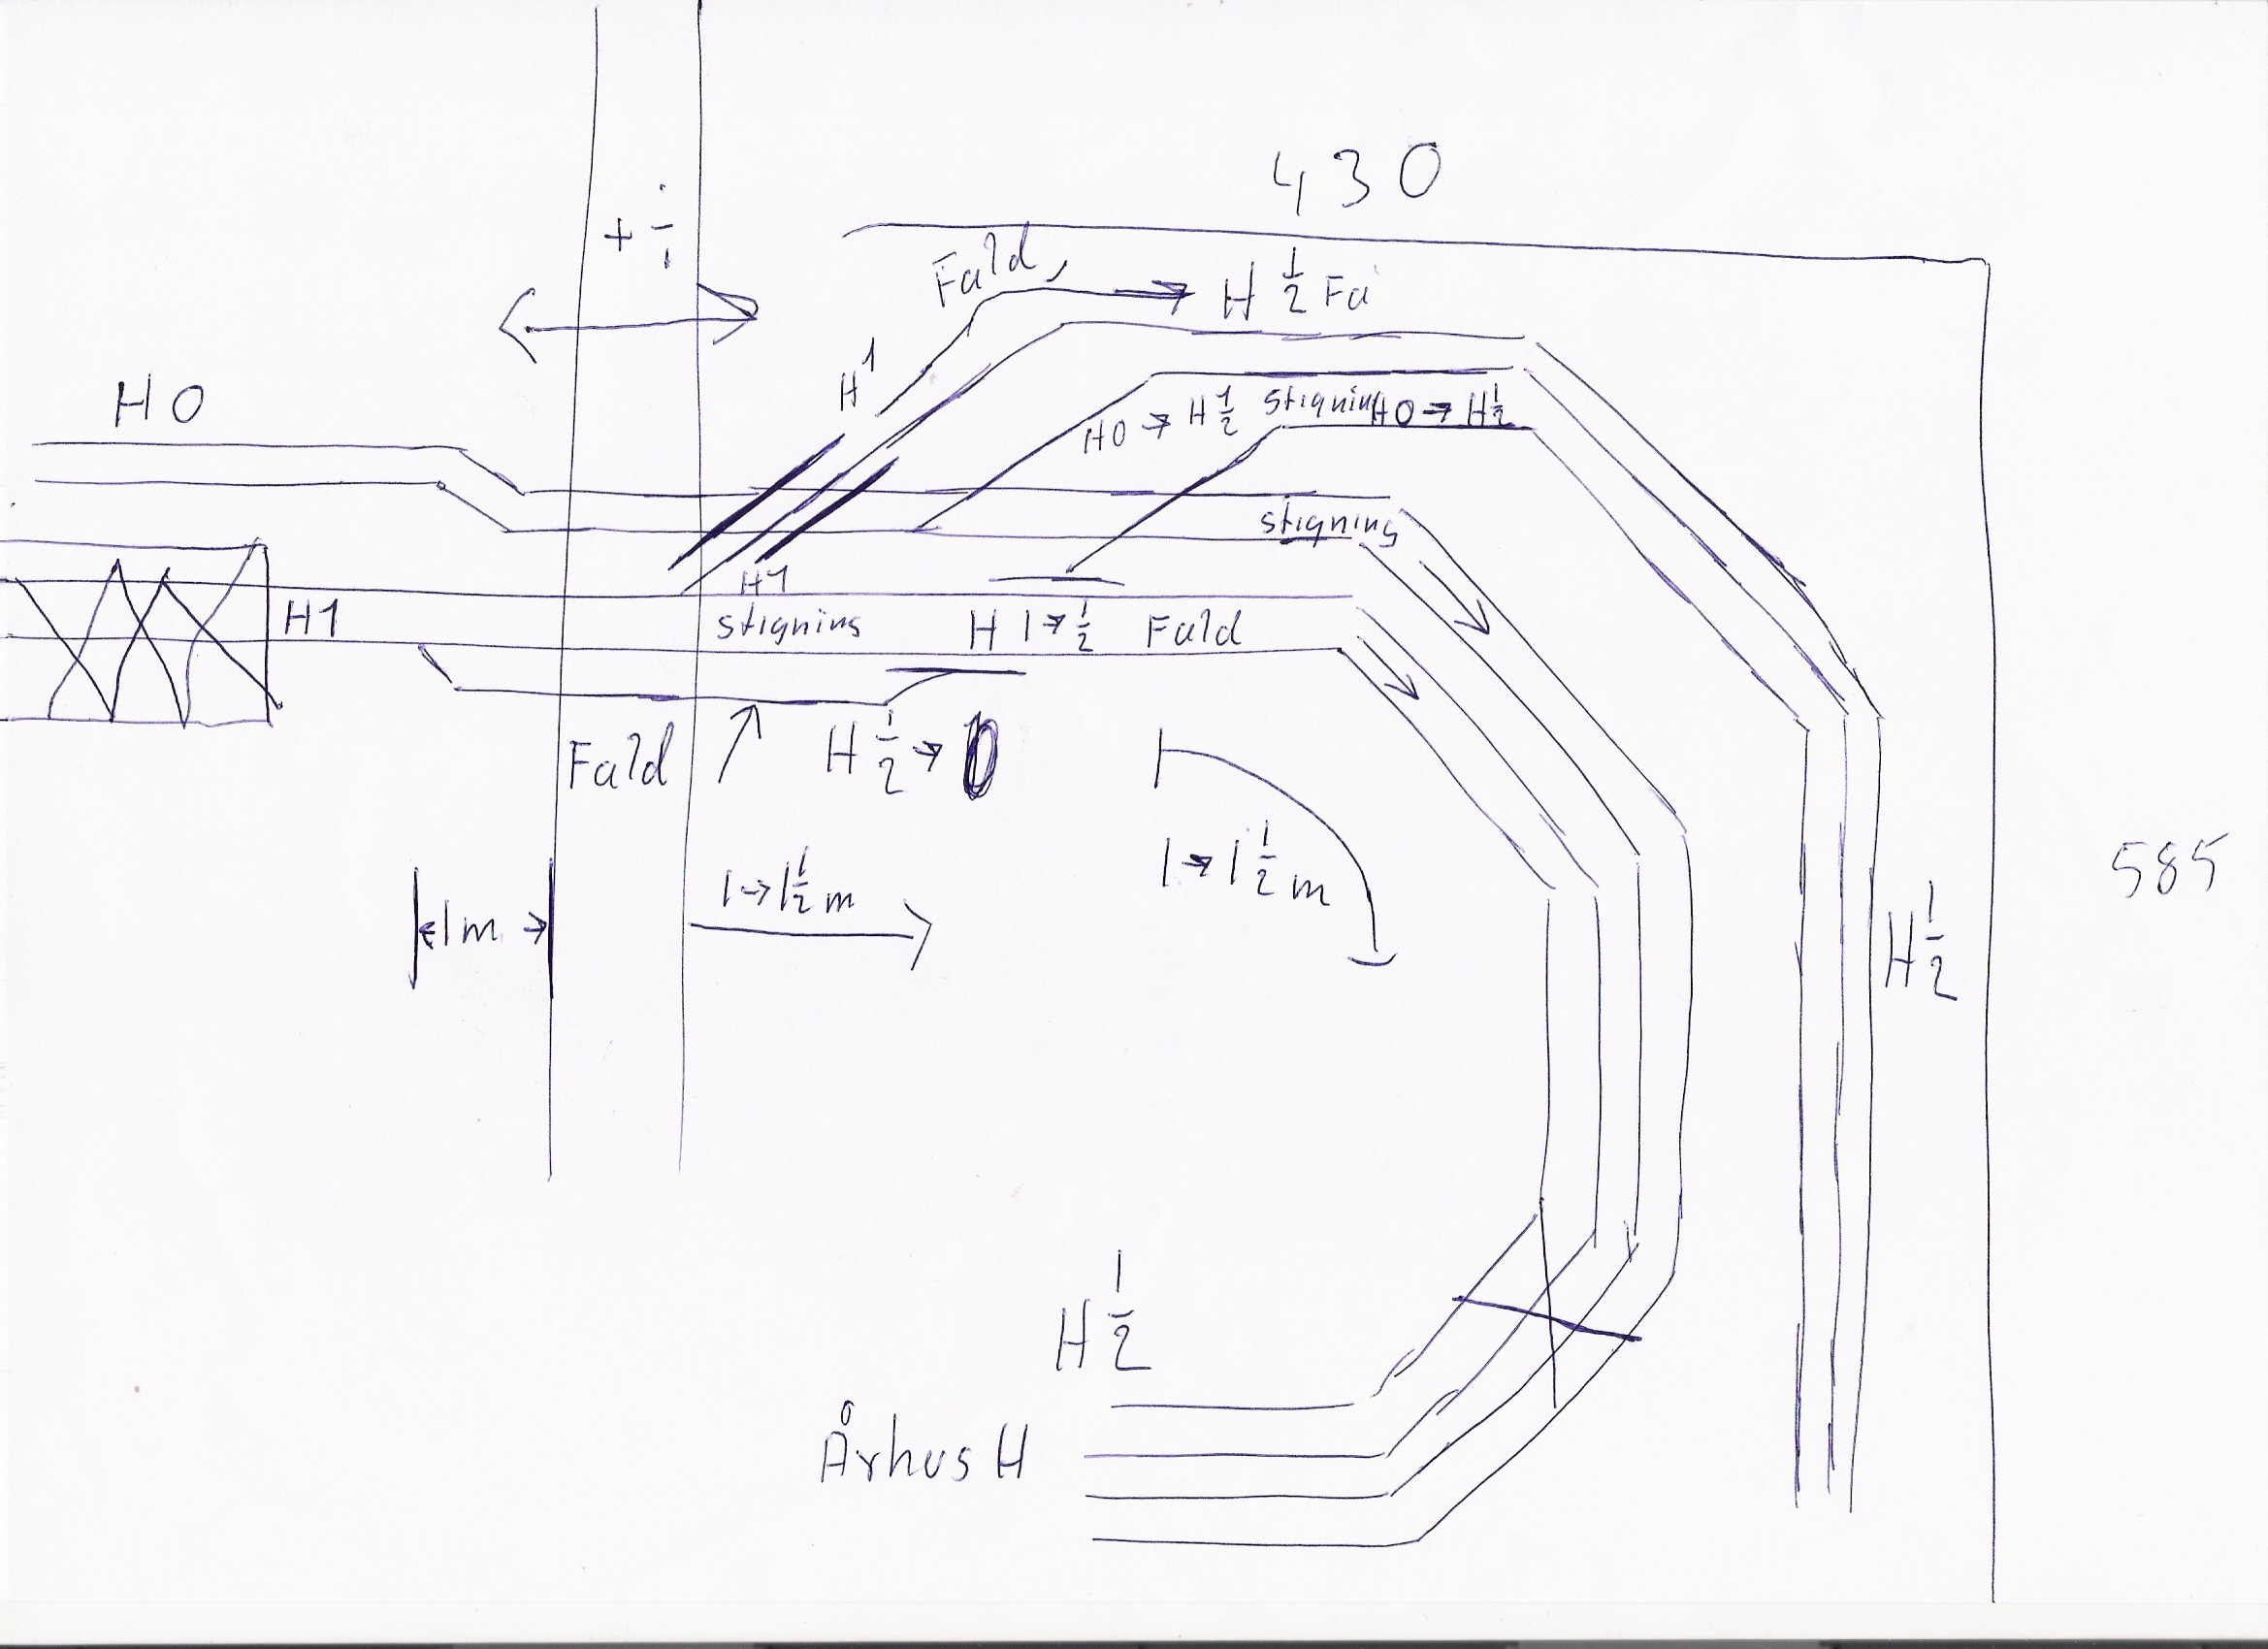 430
+ ÷
Fald
H ½ Fa
H 1
H0
H0 → H ½
Stigning
H0 → H ½
stigning
H1
H1
stigning
H 1 → ½ Fald
Fald
H ½ → 0
1 → 1 ½ m
1 → 1 ½ m
1 m
585
H ½
H ½
Århus H